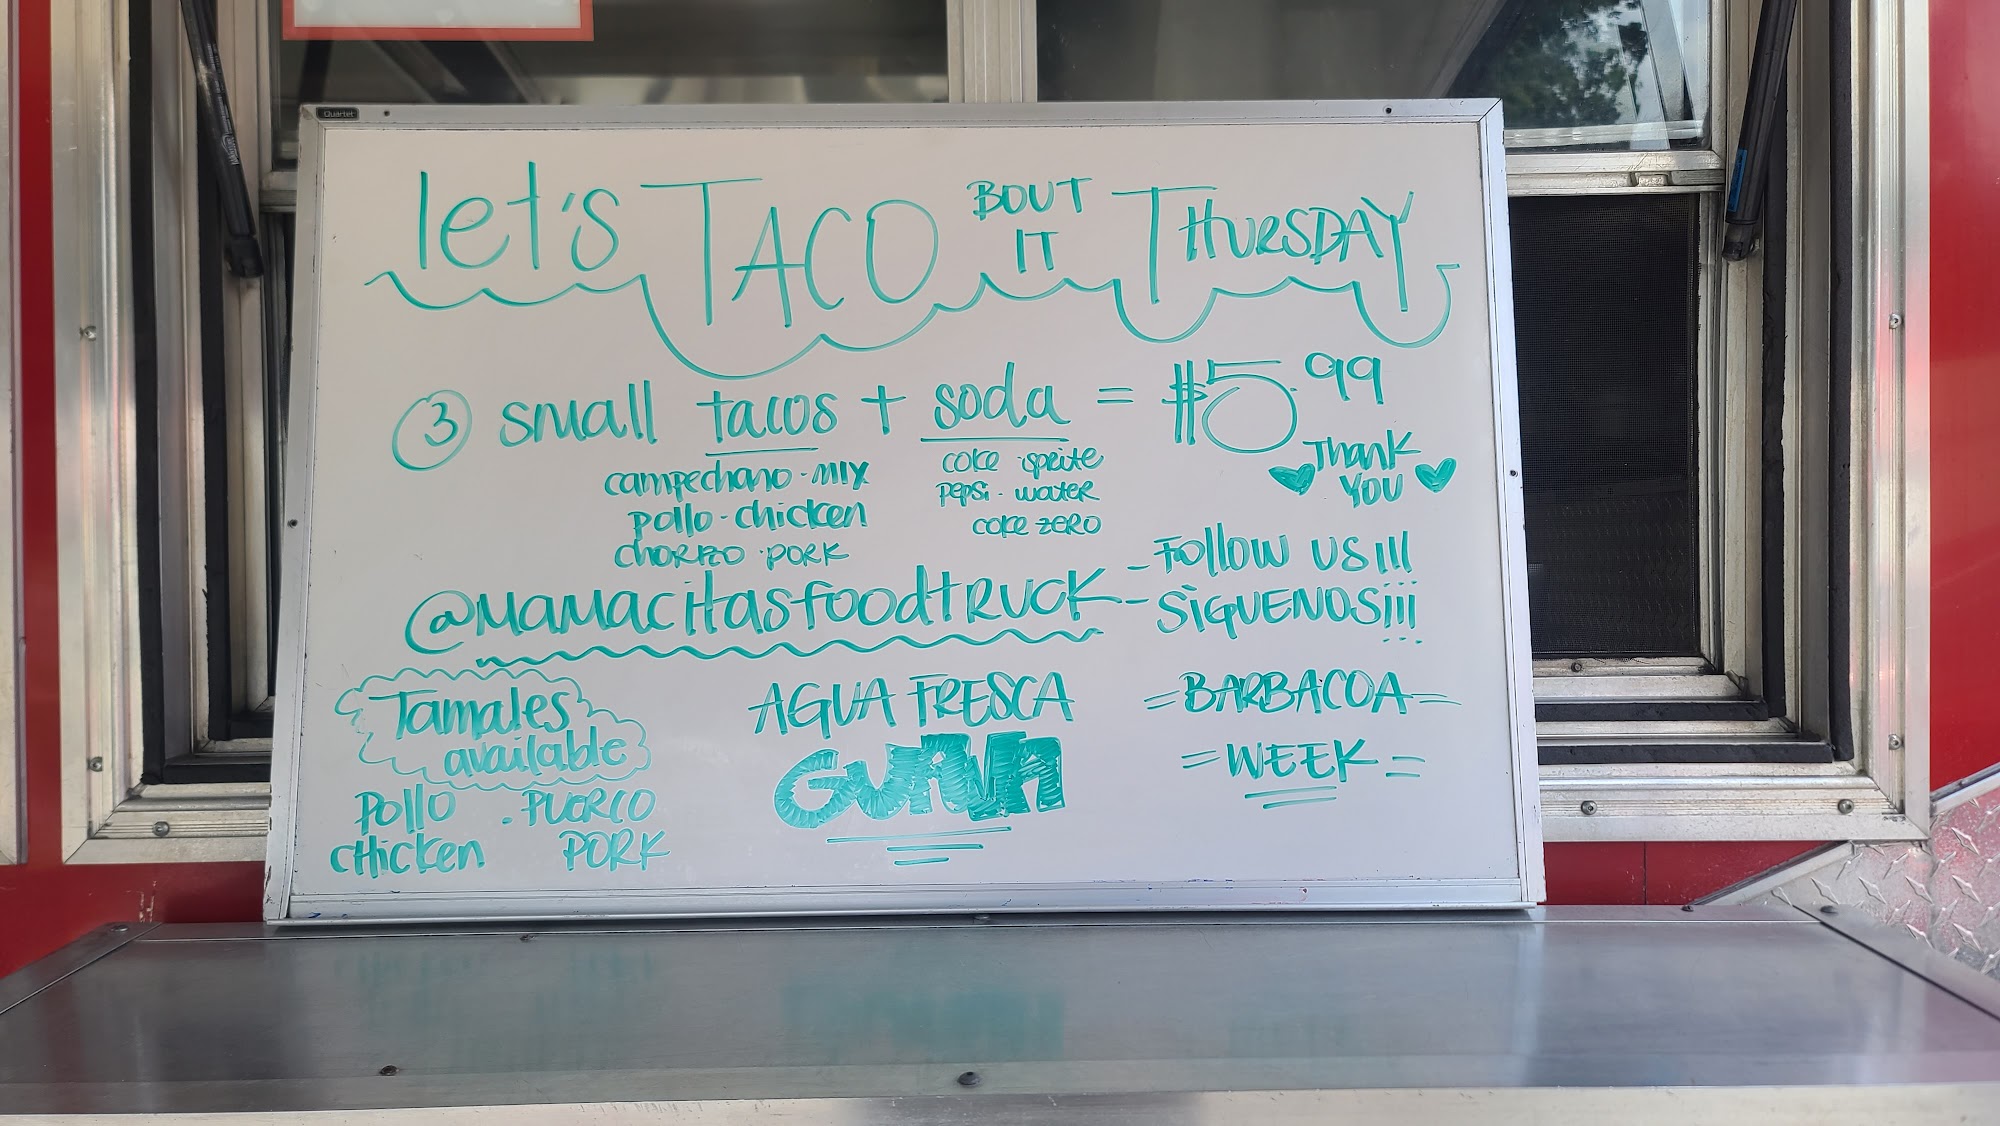 Quartet
let's TACO BOUT IT THURSDAY
3 small tacos + soda = $5.99
campechano · MIX
pollo · chicken
chorizo · PORK
coke · sprite
pepsi · water
coke zero
Thank
You
@MAMACITASFOODTRUCK
- Follow US!!!
- SÍGUENOS¡¡¡
Tamales
available
pollo . PUERCO
chicken PORK
AGUA FRESCA
GUAVA
= BARBACOA =
= WEEK =